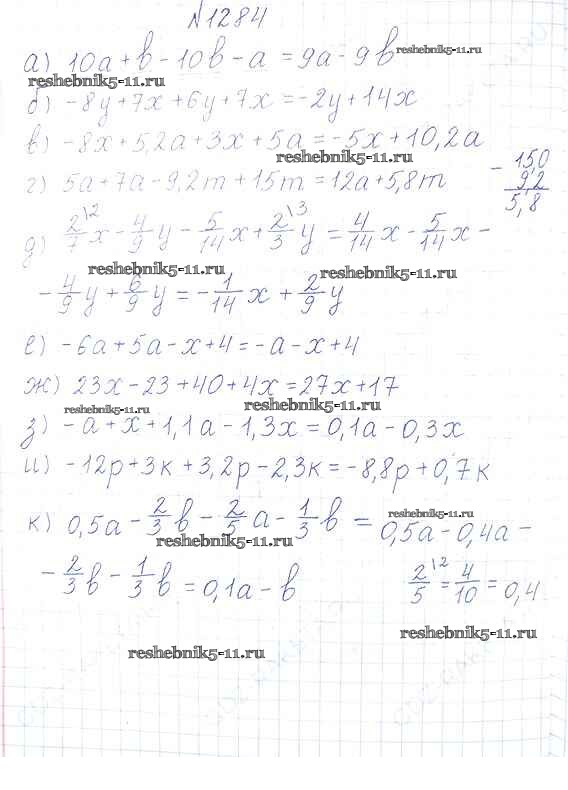 №1284
а) 10a + b - 10b - a = 9a - 9b reshebnik5-11.ru
reshebnik5-11.ru
б) -8y + 7x + 6y + 7x = -2y + 14x
в) -8x + 5,2a + 3x + 5a = -5x + 10,2a
reshebnik5-11.ru
г) 5a + 7a - 9,2m + 15m = 12a + 5,8m
- 150
9,2
5,8
д) 2/7\2 x - 4/9 y - 5/14 x + 2/3\3 y = 4/14 x - 5/14 x -
reshebnik5-11.ru reshebnik5-11.ru
- 4/9 y + 6/9 y = - 1/14 x + 2/9 y
е) -6a + 5a - x + 4 = -a - x + 4
ж) 23x - 23 + 40 + 4x = 27x + 17
reshebnik5-11.ru reshebnik5-11.ru
з) -a + x + 1,1a - 1,3x = 0,1a - 0,3x
и) -12p + 3k + 3,2p - 2,3k = -8,8p + 0,7k
к) 0,5a - 2/3 b - 2/5 a - 1/3 b = 0,5a - 0,4a -
reshebnik5-11.ru
reshebnik5-11.ru
- 2/3 b - 1/3 b = 0,1a - b
2/5\2 = 4/10 = 0,4
reshebnik5-11.ru
reshebnik5-11.ru